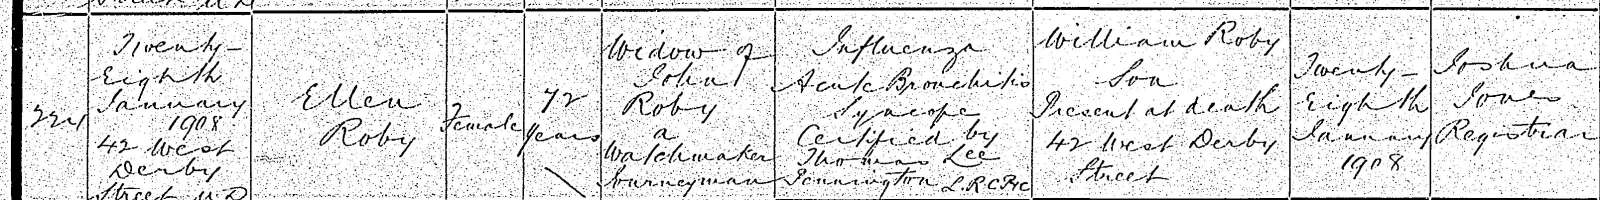 224
Twenty-
Eighth
January
1908
42 West
Derby
Street U.D
Ellen
Roby
Female
72
years
Widow of
John
Roby
a
Watchmaker
Journeyman
Influenza
Acute Bronchitis
Syncope
Certified by
Thomas Lee
Pennington L.R.C.P.
William Roby
Son
Present at death
42 West Derby
Street
Twenty-
Eighth
January
1908
Joshua
Jones
Registrar